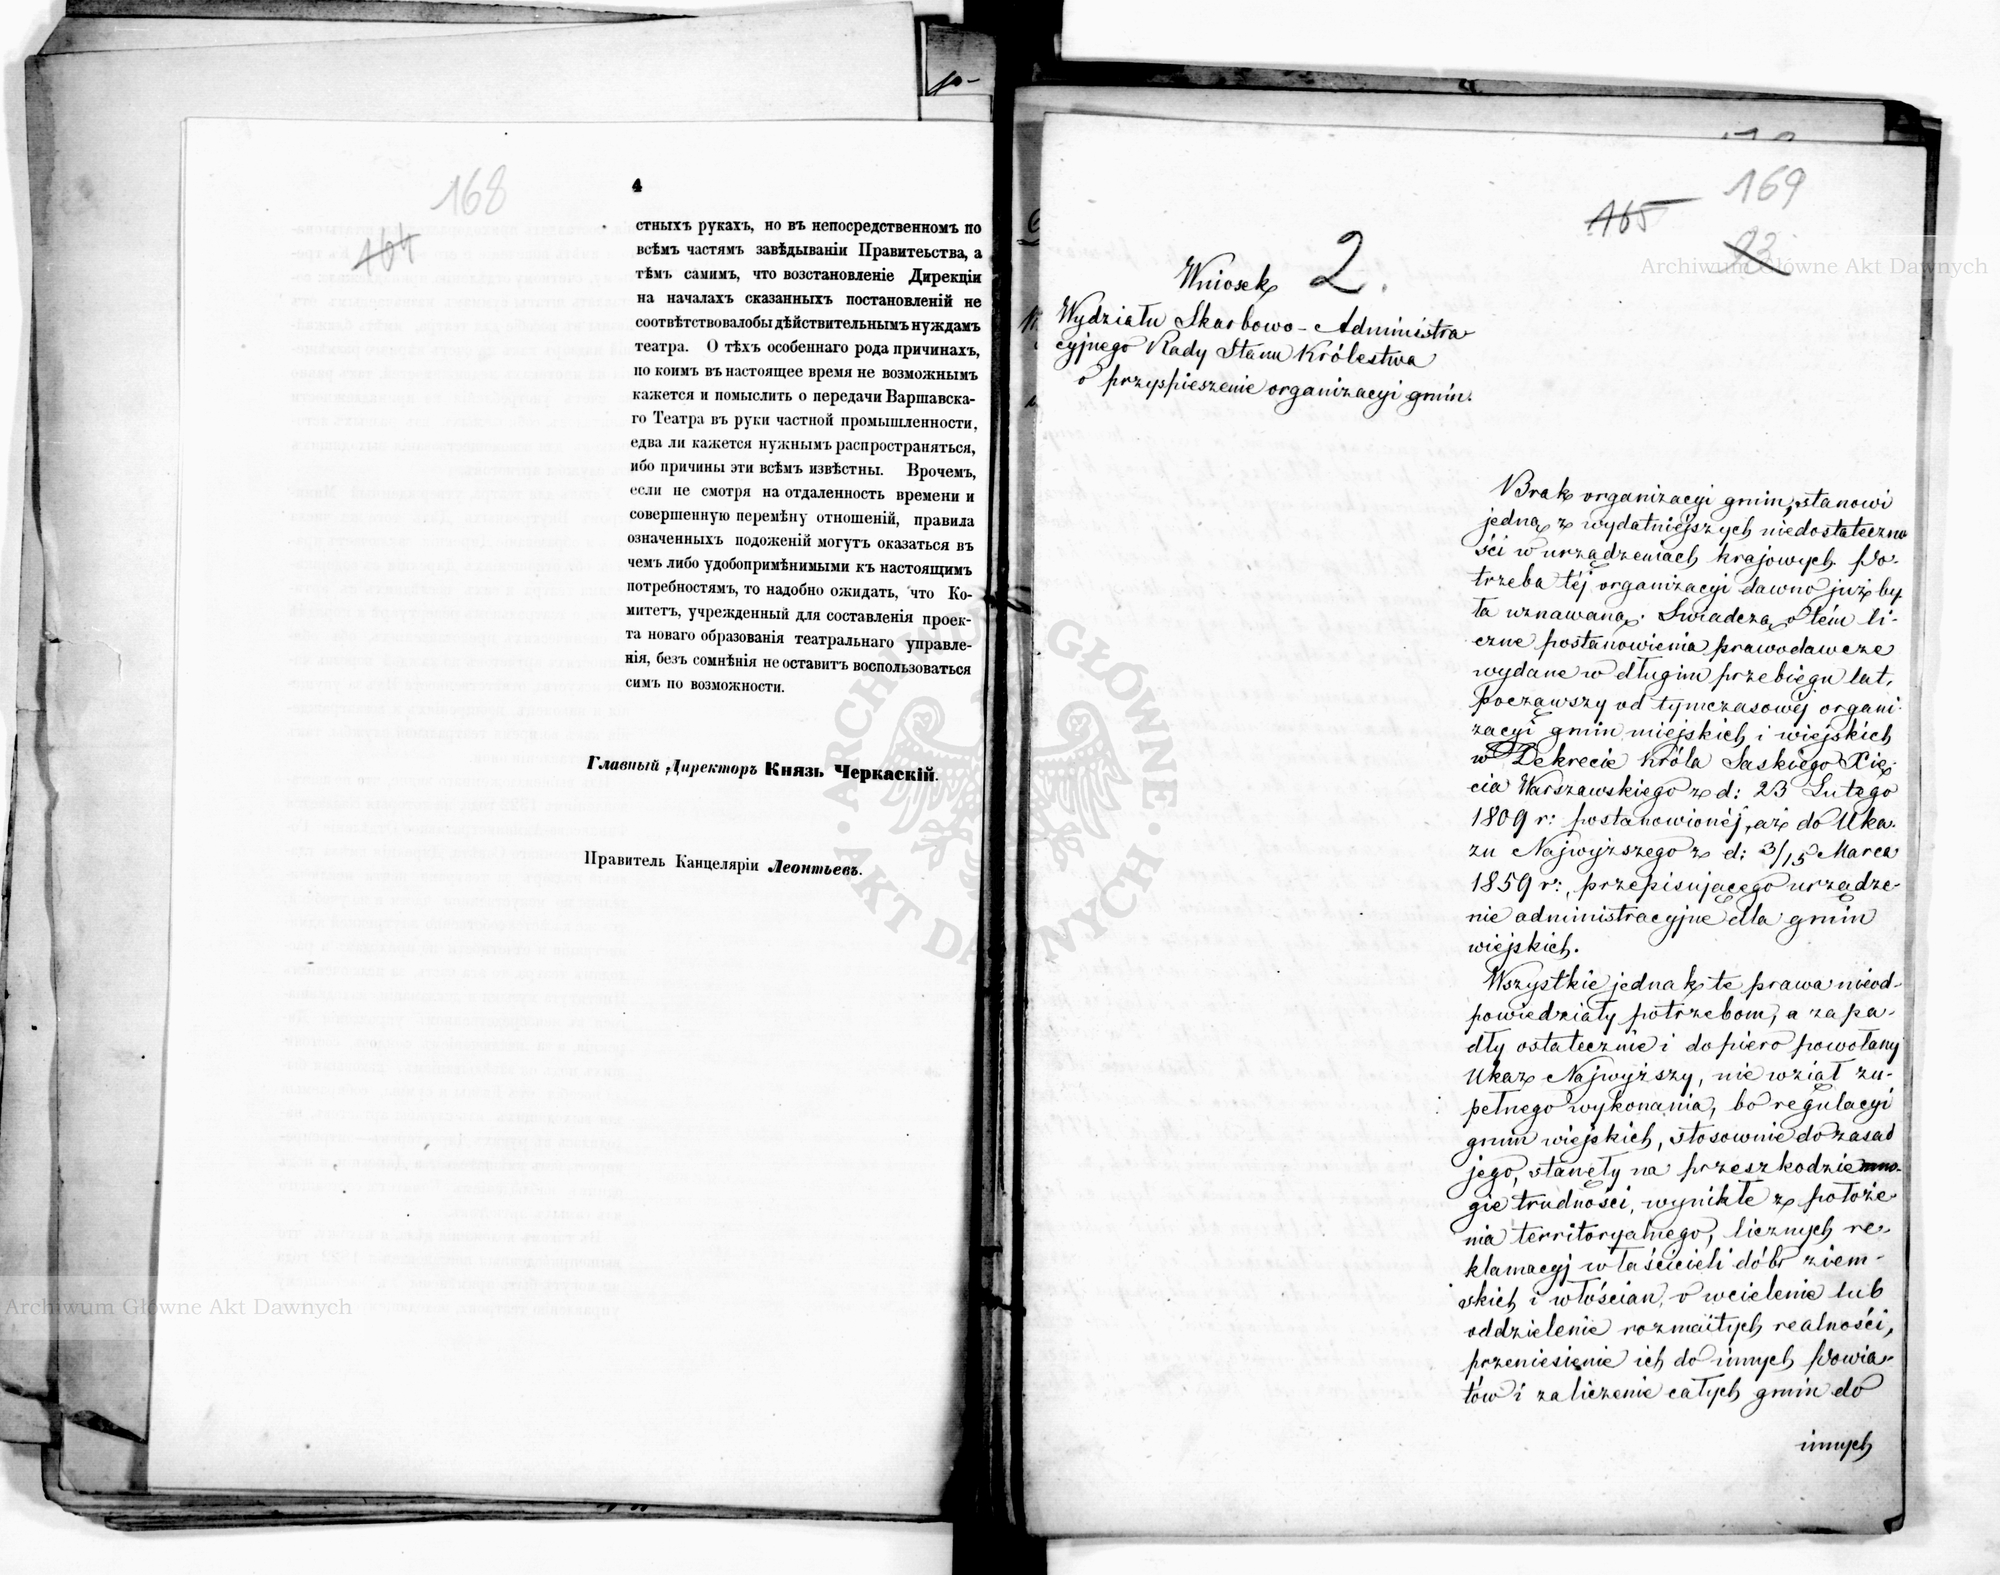 168
4
164
стныхъ рукахъ, но въ непосредственномъ по
всѣмъ частямъ завѣдываніи Правитеьства, а
тѣмъ самимъ, что возстановленіе Дирекціи
на началахъ сказанныхъ постановленій не
соотвѣтствовалобы дѣйствительнымъ нуждамъ
театра. О тѣхъ особеннаго рода причинахъ,
по коимъ въ настоящее время не возможнымъ
кажется и помыслить о передачи Варшавска-
го Театра въ руки частной промышленности,
едва ли кажется нужнымъ распространяться,
ибо причины эти всѣмъ извѣстны. Врочемъ,
если не смотря на отдаленность времени и
совершенную перемѣну отношеній, правила
означенныхъ подоженій могутъ оказаться въ
чемъ либо удобопримѣнимыми къ настоящимъ
потребностямъ, то надобно ожидать, что Ко-
митетъ, учрежденный для составленія проек-
та новаго образованія театральнаго управле-
нія, безъ сомнѣнія не оставитъ воспользоваться
симъ по возможности.
Главный Директоръ Князь Черкаскій.
Правитель Канцеляріи Леонтьевъ.
169
165
93
Wniosek 2.
Wydziału Skarbowo-Administra
cyjnego Rady Stanu Królestwa
o przyspieszenie organizacyi gmin.
Brak organizacyi gmin, stanowi
jedną z wydatniejszych niedostateczno
ści w urządzeniach krajowych. Po-
trzeba téj organizacyi dawno już by
ła uznawaną. Świadczą o tém li-
czne postanowienia prawodawcze
wydane w długim przebiegu lat,
począwszy od tymczasowéj organi-
zacyi gmin miejskich i wiejskich
w Dekrecie Króla Saskiego Xię-
cia Warszawskiego z d: 23 Lutego
1809 r: postanowionéj, aż do Uka-
zu Najwyższego z d: 3/15 Marca
1859 r:, przepisującego urządze-
nie administracyjne dla gmin
wiejskich.
Wszystkie jednak te prawa nieod-
powiedziały potrzebom, a zapa-
dły ostatecznie i dopiero powołany
Ukaz Najwyższy, nie wziął zu-
pełnego wykonania, bo regulacyi
gmin wiejskich, stosownie do zasad
jego, stanęły na przeszkodzie mno-
gie trudności, wynikłe z położe-
nia territoryalnego, licznych re-
klamacyj właścicieli dóbr ziem-
skich i włościan, o wcielenie lub
oddzielenie rozmaitych realności,
przeniesienie ich do innych Powia-
tów i zaliczenie całych gmin do
innych
Archiwum Główne Akt Dawnych
Archiwum Główne Akt Dawnych
ARCHIWUM GŁÓWNE · AKT DAWNYCH ·